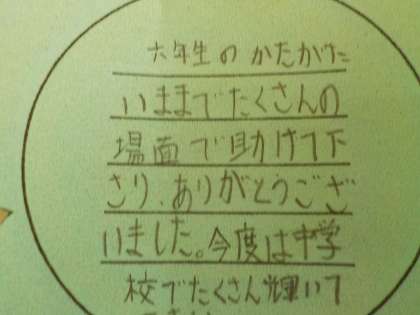 六年生のかたがた
いままでたくさんの
場面で助けて下
さり、ありがとうござ
いました。今度は中学
校でたくさん輝いて